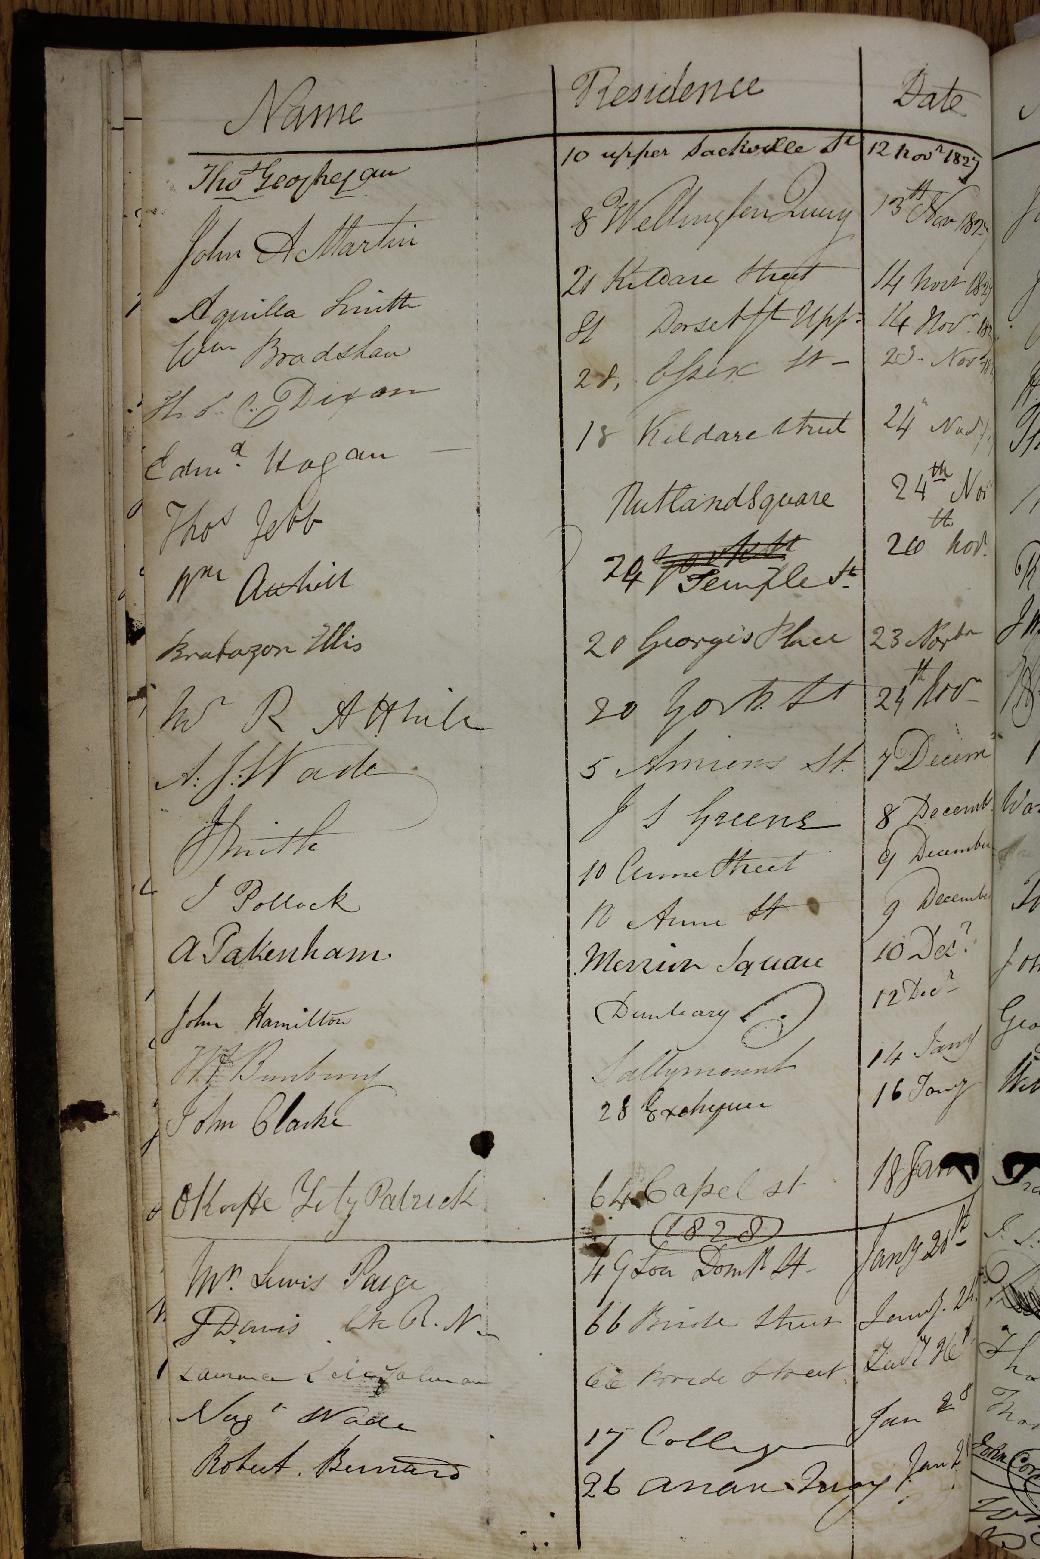 Name Residence Date
Thos Geoghegan 10 upper Sackville St 12 Novr 1827
John A Martin 8 Wellington Quay 13th Nov 182
Aquilla Smith 21 Kildare Street 14 Novr 182
Wm Bradshaw Dorset St Upp. 14 Novr. 182
Thos. Dixon 28, Essex St 23. Novr
Edmd. Hogan 18 Kildare Street 24
Thos Jebb Rutland Square 24th Nov
Wm Authill 24 York St Temple St. 20th Nov.
Brabazon Ellis 20 George's Place 23 Novbr
Mr R Atthill 20 York St 24th Nov
A. J. Wade 5 Amiens St. 7 Decem
J Smith J S Greene 8 Decemb
J Pollock 10 Anne Street 9 December
A Pakenham. 10 Anne St 9 December
Merrion Square 10 Decr.
John Hamilton Dunleary 12 Decr
Bunbury Sallymount 14 Jany
John Clarke 28 Exchequer 16 Jany
O'Keeffe FitzPatrick 64 Capel st 18 Jan
(1828)
Mr. Lewis Paige 49 Lou Domk St. Jany 20th
J Davis R. N. 66 Bride Street Jany. 2
66 Bride Street
Wade 17 College Jan 28
Robert. Bernard 26 Arran Quay Jan 2